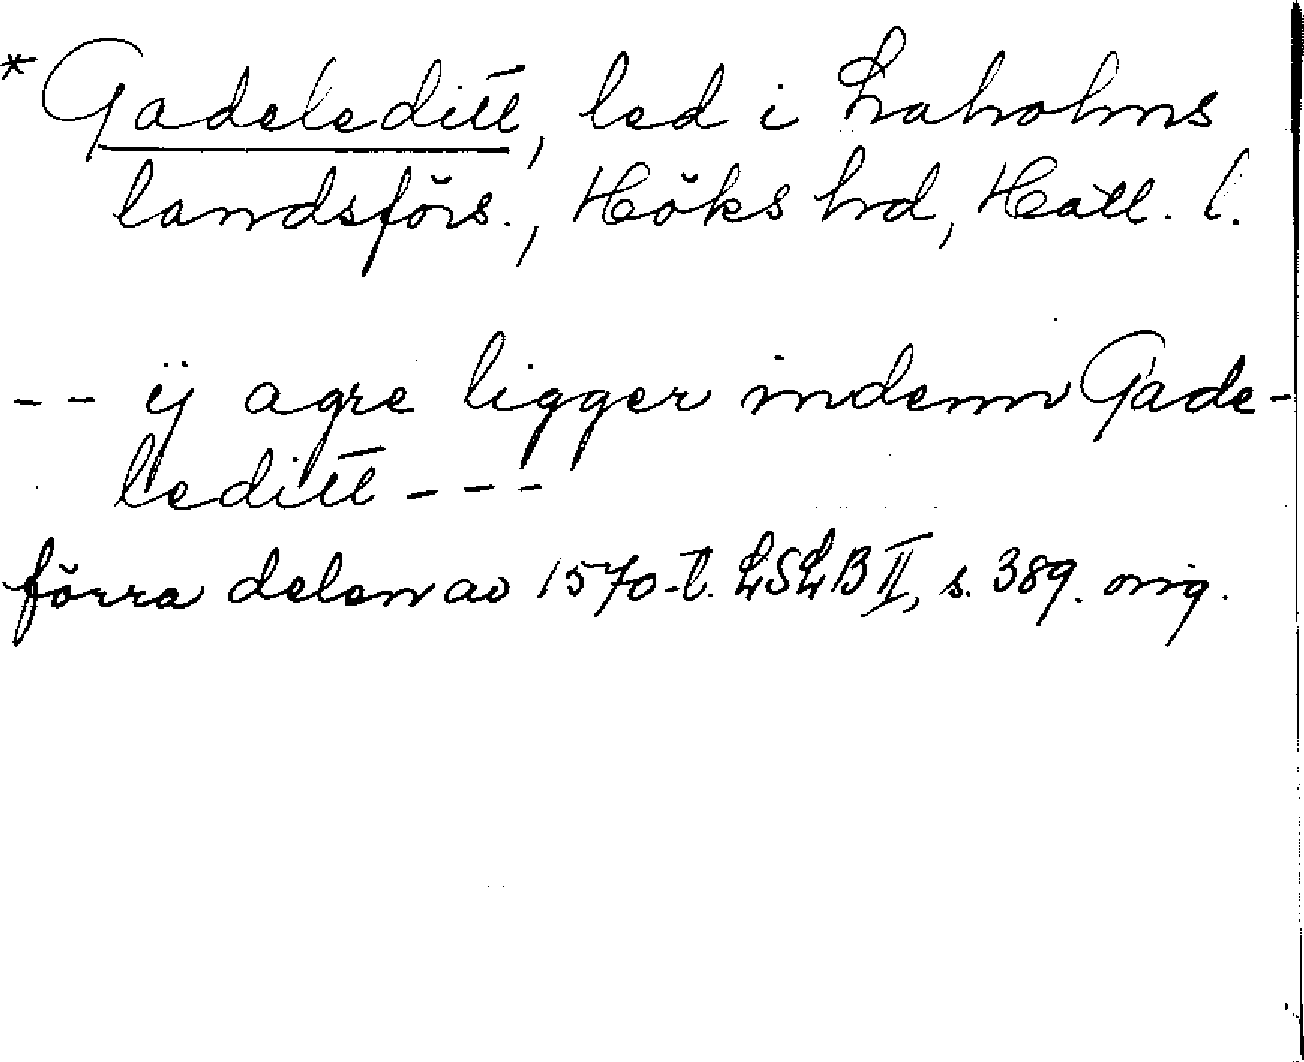 *Gadeleditt, led i Laholms
landsförs., Höks hd, Hall. l.
-- ij agre ligger indenn Gade-
leditt ---
förra delen av 1570-t. LSLB II, s. 389. orig.